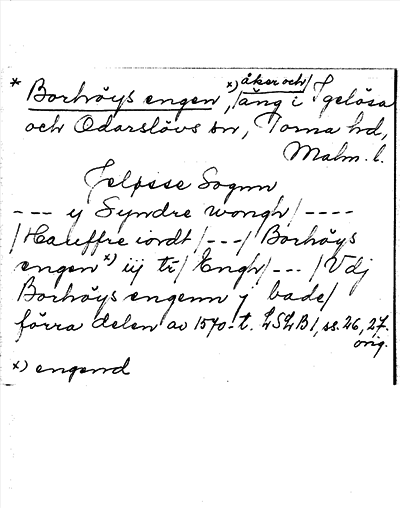 x) åker och/
* Borhöys engen, /äng i Igelösa
och Odarslövs sn, Torna hd,
Malm. l.
Jelösse Sognn
--- y Syndre wongh/----
/Hauffre iordt/---/Borhöys
engen x) iij tr/Engh/---/Vdj
Borhöys engenn j bade/
förra delen av 1570-t. LSLB1, ss. 26, 27.
orig.
x) engend